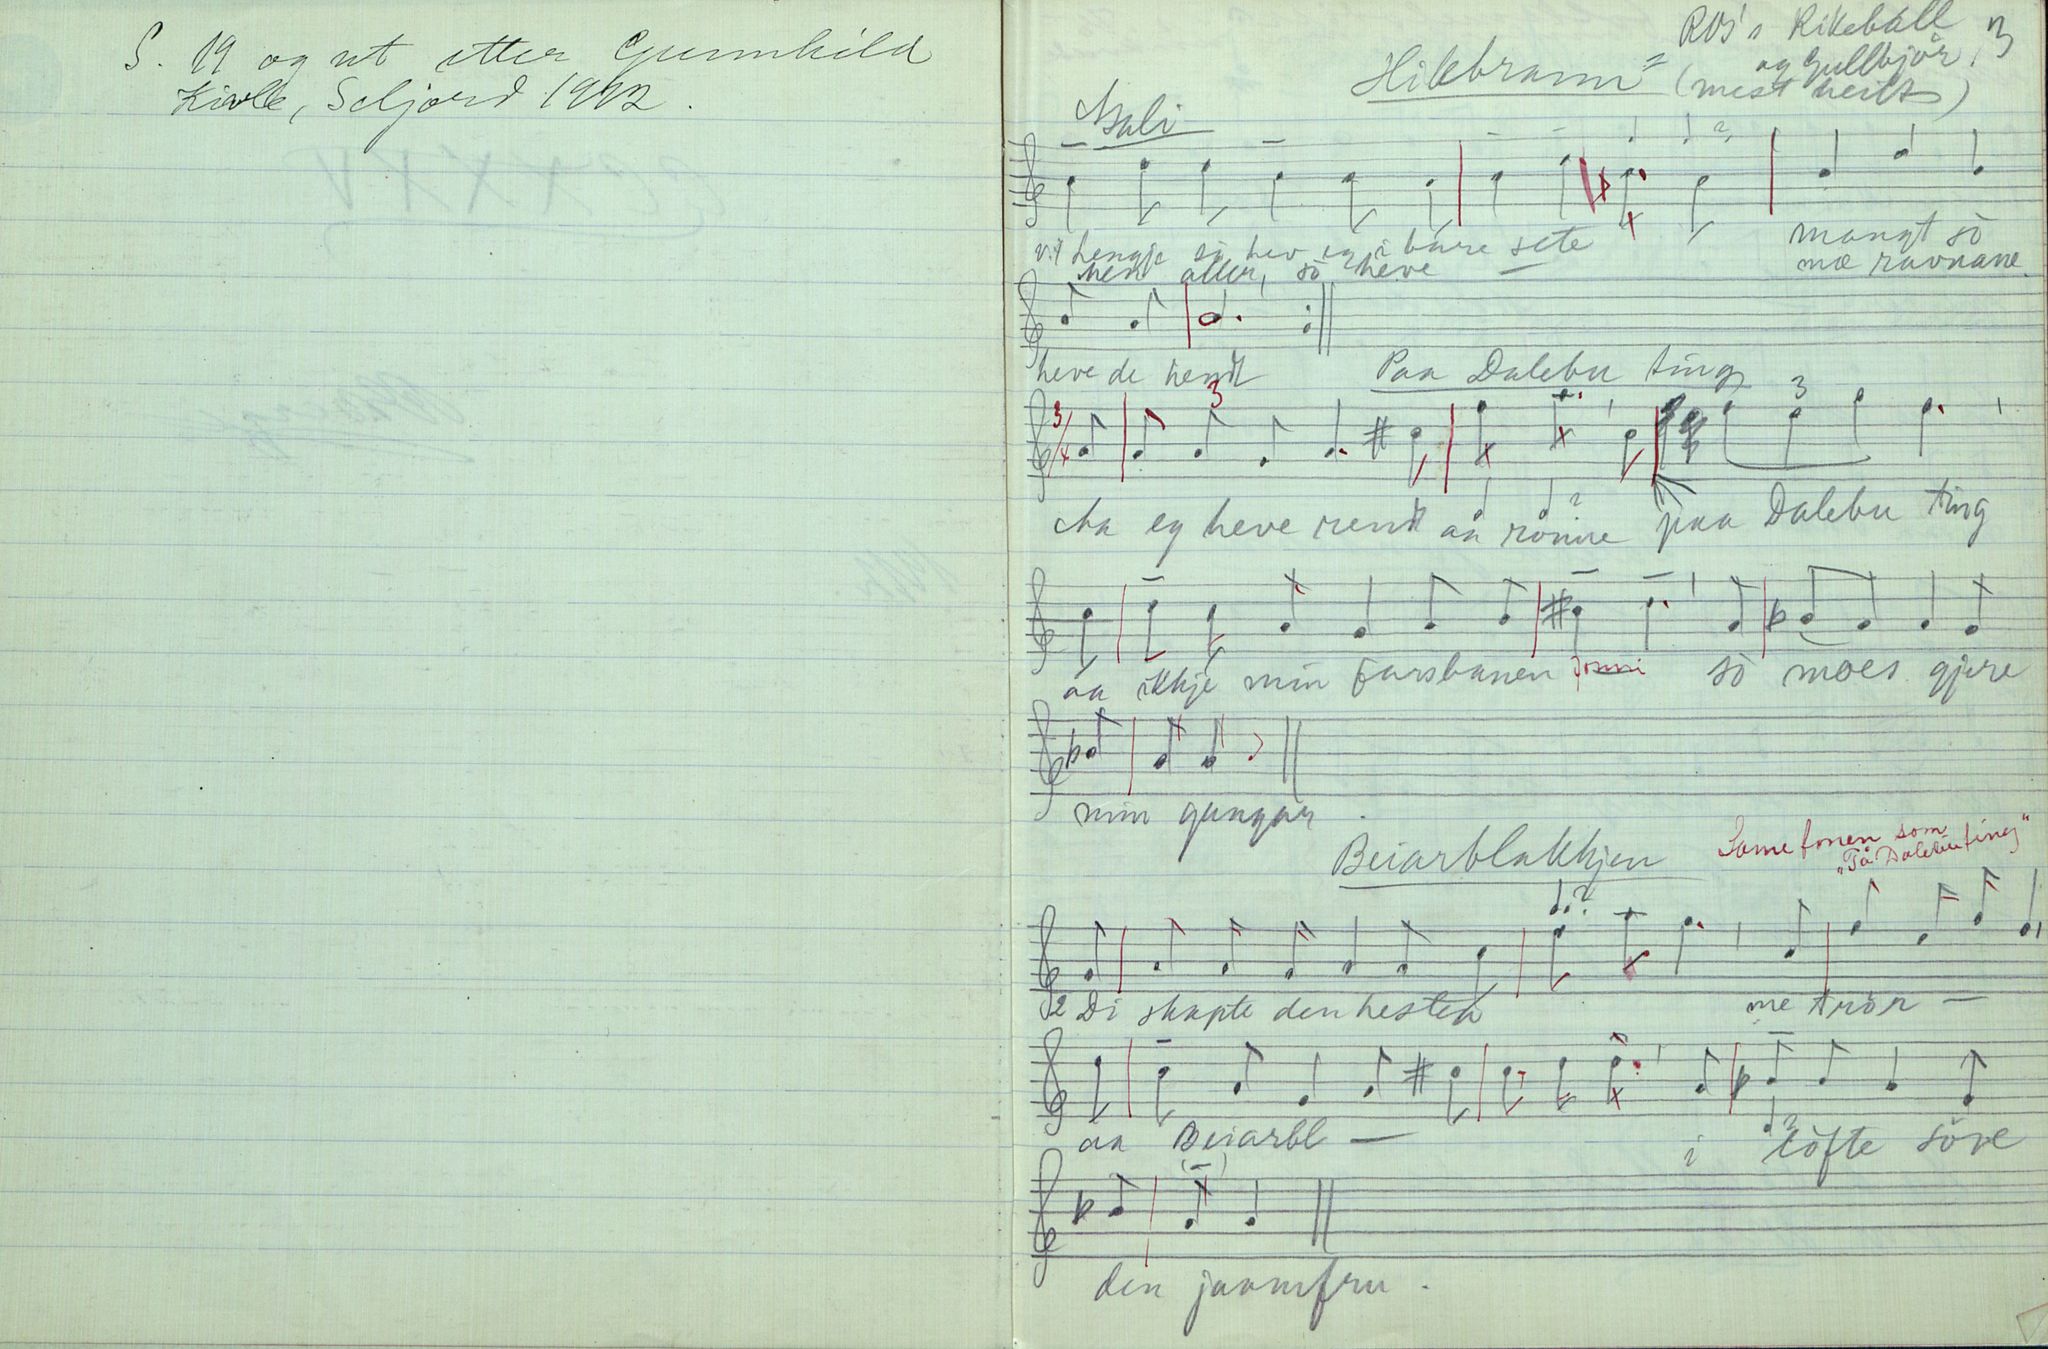 S. 19 og ut etter Gunnhild
Kivle, Seljord 1912.
Rikeball 3
Hikebramm = og Gullbjör,
(mest heilt)
Åsali
vil hengje so hev eg i bare sete mangt so
hev aller, so heve mæ ravnane
heve de hendt Paa Dalebu ting
3/4 3 3
Aa eg heve rendt aa ronne paa Dalebu ting
aa ikkje min farsbanen so moes gjere
min gangar.
Beiarblakkjen Same tonen som
"På Dalebu ting"
2 Di skapte den hesten me tror —
aa Beiarbl — i lofte sove
den jaamfru.